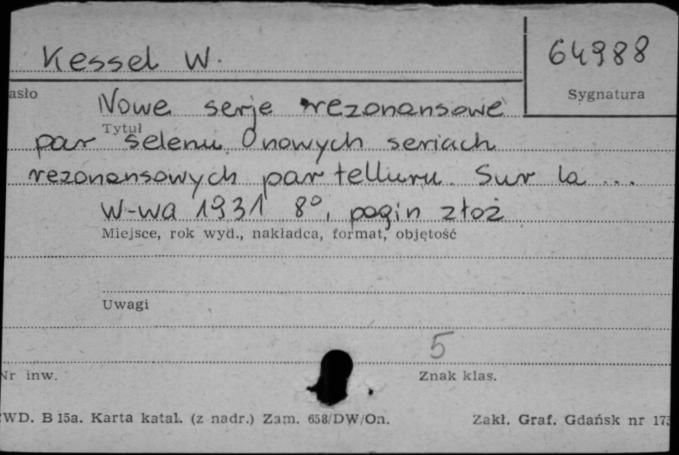 Kessel W.
64988
asło
Sygnatura
Nowe serje rezonansowe
Tytuł
par selenu. O nowych seriach
rezonansowych par telluru. Sur la ...
W-wa 1931 8°, pagin złoż
Miejsce, rok wyd., nakładca, format, objętość
Uwagi
5
Nr inw.
Znak klas.
WD. B 15a. Karta katal. (z nadr.) Zam. 658/DW/On.
Zakł. Graf. Gdańsk nr 173